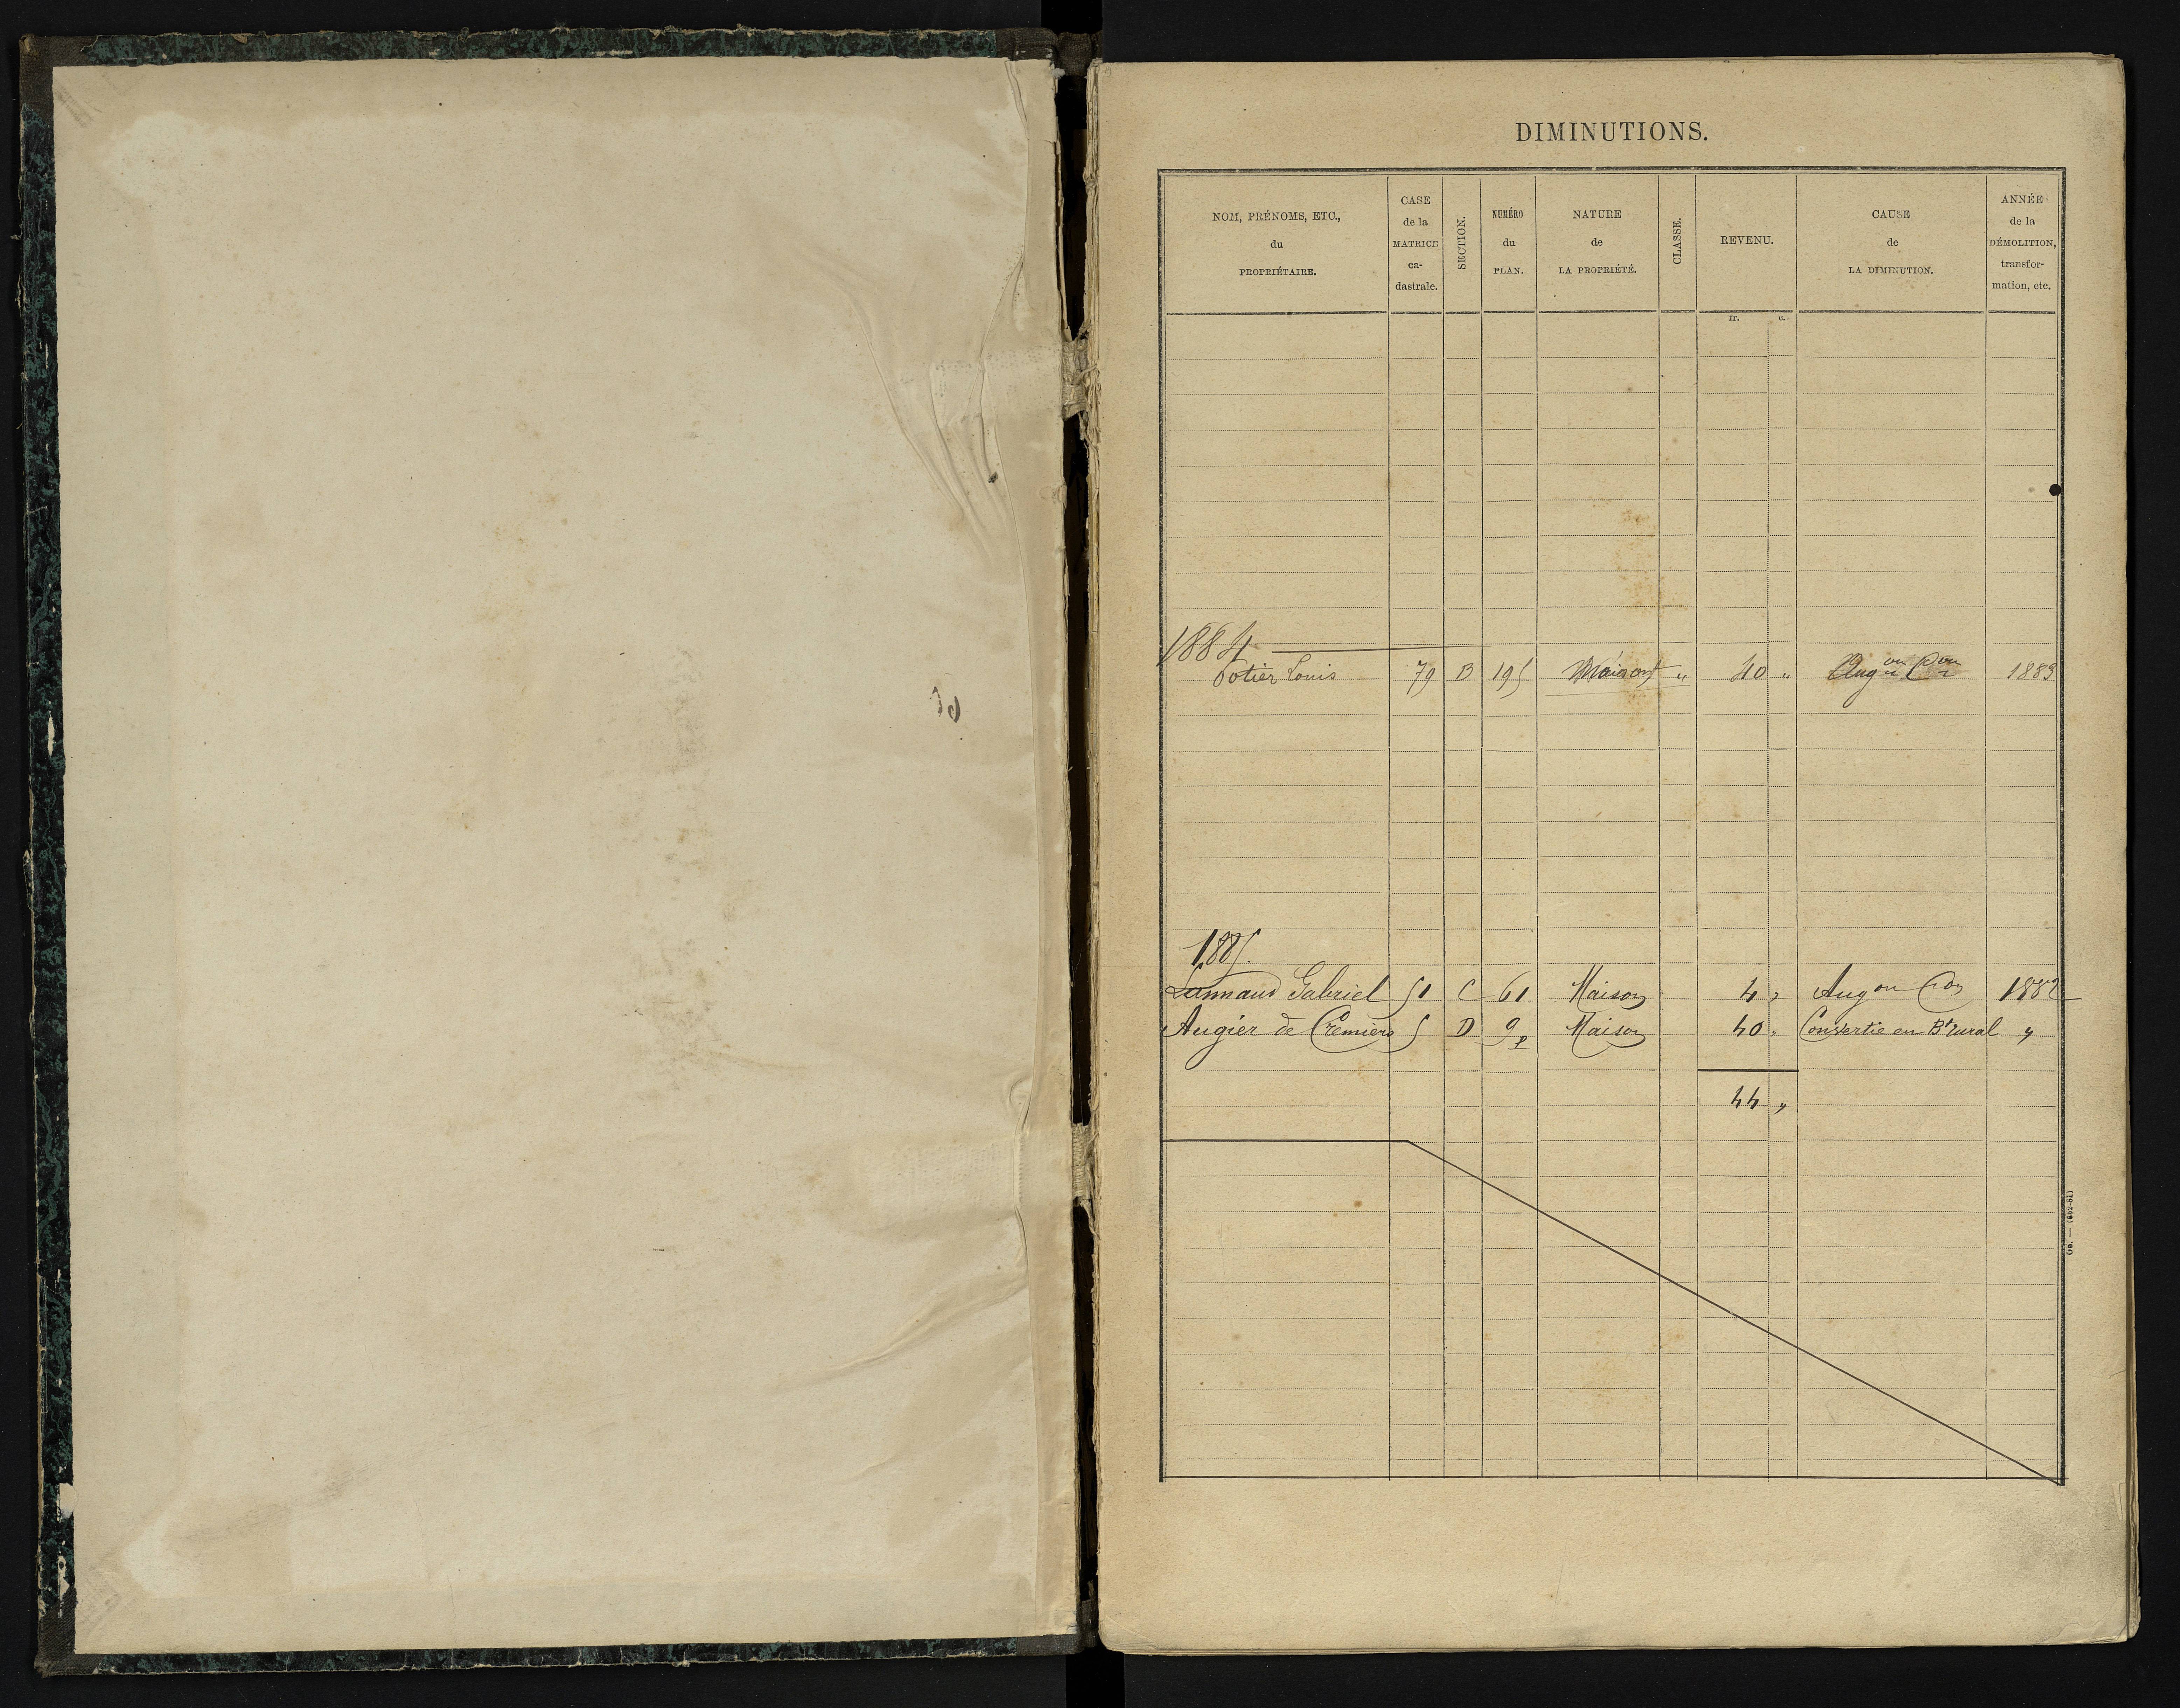 DIMINUTIONS.
NOM, PRÉNOMS, ETC., du PROPRIÉTAIRE.
CASE de la MATRICE ca- dastrale.
SECTION.
NUMÉRO du PLAN.
NATURE de LA PROPRIÉTÉ.
CLASSE.
REVENU.
CAUSE de LA DIMINUTION.
ANNÉE de la DÉMOLITION, transfor- mation, etc.
fr. c.
1884
Potier Louis 79 B 195 Maison " 40 " Aug on Con 1883
1885.
Gabriel 51 C 61 Maison 4 " Aug on Con 1882
Augier de Cremiers 5 D 9p Maison 40 " Convertie en Bt rural "
44 "
Ob. — (682-81)